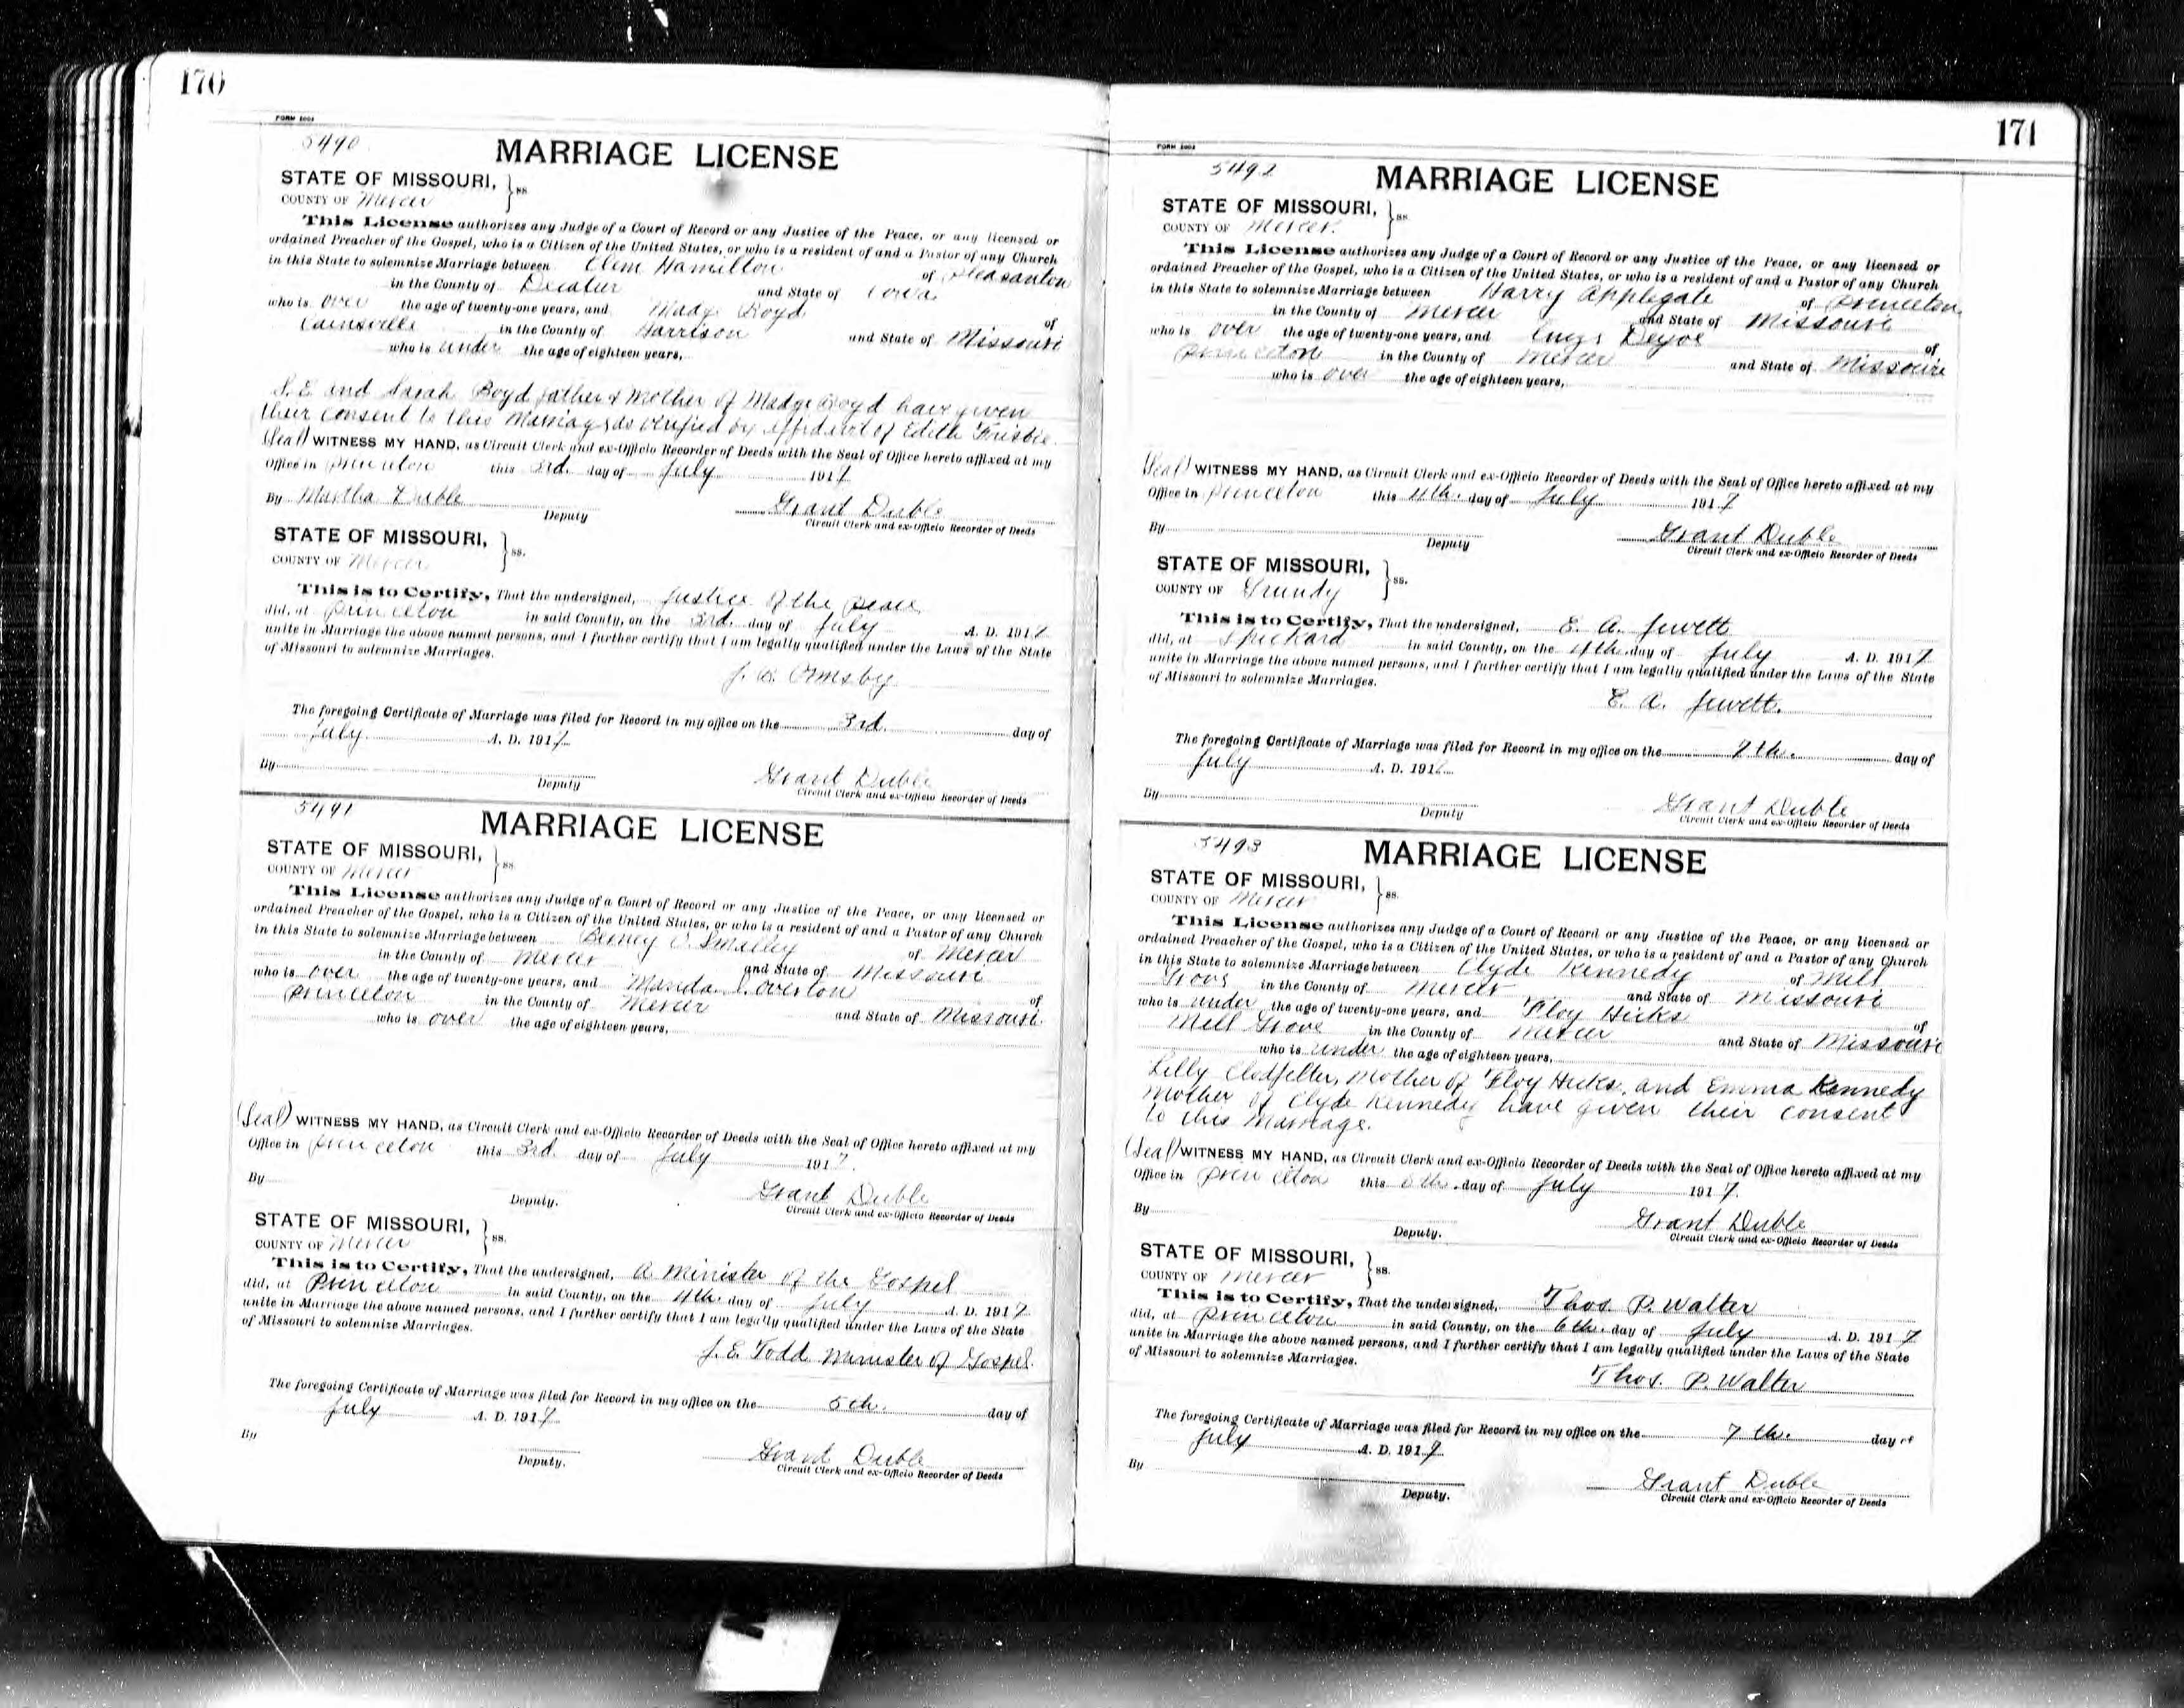 170
FORM 1001
5490
MARRIAGE LICENSE
STATE OF MISSOURI, } ss.
COUNTY OF Mercer
This License authorizes any Judge of a Court of Record or any Justice of the Peace, or any licensed or
ordained Preacher of the Gospel, who is a Citizen of the United States, or who is a resident of and a Pastor of any Church
in this State to solemnize Marriage between Clem Hamilton of Pleasanton
in the County of Decatur and State of Iowa
who is over the age of twenty-one years, and Madge Boyd of
Cainsville in the County of Harrison and State of Missouri
who is under the age of eighteen years,
S. E. and Sarah Boyd father & Mother of Madge Boyd have given
their consent to this Marriage as verified by affidavit of Edith Frisbie
(Seal) WITNESS MY HAND, as Circuit Clerk and ex-Officio Recorder of Deeds with the Seal of Office hereto affixed at my
Office in Princeton this 3rd. day of July 1917
By Martha Duble Grant Duble
Deputy Circuit Clerk and ex-Officio Recorder of Deeds
STATE OF MISSOURI, } ss.
COUNTY OF Mercer
This is to Certify, That the undersigned, Justice of the Peace
did, at Princeton in said County, on the 3rd. day of July A. D. 1917
unite in Marriage the above named persons, and I further certify that I am legally qualified under the Laws of the State
of Missouri to solemnize Marriages.
Ormsby
The foregoing Certificate of Marriage was filed for Record in my office on the 3rd. day of
July A. D. 1917
By Grant Duble
Deputy Circuit Clerk and ex-Officio Recorder of Deeds
5491
MARRIAGE LICENSE
STATE OF MISSOURI, } ss.
COUNTY OF Mercer
This License authorizes any Judge of a Court of Record or any Justice of the Peace, or any licensed or
ordained Preacher of the Gospel, who is a Citizen of the United States, or who is a resident of and a Pastor of any Church
in this State to solemnize Marriage between O. Smalley of Mercer
in the County of Mercer and State of Missouri
who is over the age of twenty-one years, and Overton of
Princeton in the County of Mercer and State of Missouri.
who is over the age of eighteen years,
(Seal) WITNESS MY HAND, as Circuit Clerk and ex-Officio Recorder of Deeds with the Seal of Office hereto affixed at my
Office in Princeton this 3rd. day of July 1917.
By Grant Duble
Deputy. Circuit Clerk and ex-Officio Recorder of Deeds
STATE OF MISSOURI, } ss.
COUNTY OF Mercer
This is to Certify, That the undersigned, A Minister of the Gospel
did, at Princeton in said County, on the 4th. day of July A. D. 1917
unite in Marriage the above named persons, and I further certify that I am legally qualified under the Laws of the State
of Missouri to solemnize Marriages.
J. E. Todd Minister of Gospel.
The foregoing Certificate of Marriage was filed for Record in my office on the 5th. day of
July A. D. 1917
By Grant Duble
Deputy. Circuit Clerk and ex-Officio Recorder of Deeds
171
FORM 1001
5492
MARRIAGE LICENSE
STATE OF MISSOURI, } ss.
COUNTY OF Mercer.
This License authorizes any Judge of a Court of Record or any Justice of the Peace, or any licensed or
ordained Preacher of the Gospel, who is a Citizen of the United States, or who is a resident of and a Pastor of any Church
in this State to solemnize Marriage between Harry Applegate of Princeton
in the County of Mercer and State of Missouri
who is over the age of twenty-one years, and Deyoe of
Princeton in the County of Mercer and State of Missouri
who is over the age of eighteen years,
(Seal) WITNESS MY HAND, as Circuit Clerk and ex-Officio Recorder of Deeds with the Seal of Office hereto affixed at my
Office in Princeton this 4th. day of July 1917
By Grant Duble
Deputy Circuit Clerk and ex-Officio Recorder of Deeds
STATE OF MISSOURI, } ss.
COUNTY OF Grundy
This is to Certify, That the undersigned, E. A. Jewett
did, at Spickard in said County, on the 4th. day of July A. D. 1917
unite in Marriage the above named persons, and I further certify that I am legally qualified under the Laws of the State
of Missouri to solemnize Marriages.
E. A. Jewett.
The foregoing Certificate of Marriage was filed for Record in my office on the 7th. day of
July A. D. 191
By Grant Duble
Deputy Circuit Clerk and ex-Officio Recorder of Deeds
5493
MARRIAGE LICENSE
STATE OF MISSOURI, } ss.
COUNTY OF Mercer
This License authorizes any Judge of a Court of Record or any Justice of the Peace, or any licensed or
ordained Preacher of the Gospel, who is a Citizen of the United States, or who is a resident of and a Pastor of any Church
in this State to solemnize Marriage between Clyde Kennedy of Mill
Grove in the County of Mercer and State of Missouri
who is under the age of twenty-one years, and Floy Hicks of
Mill Grove in the County of Mercer and State of Missouri
who is under the age of eighteen years,
Lilly Clodfelter, Mother of Floy Hicks, and Emma Kennedy
Mother of Clyde Kennedy have given their consent
to this Marriage.
(Seal) WITNESS MY HAND, as Circuit Clerk and ex-Officio Recorder of Deeds with the Seal of Office hereto affixed at my
Office in Princeton this 6th. day of July 1917.
By Grant Duble
Deputy. Circuit Clerk and ex-Officio Recorder of Deeds
STATE OF MISSOURI, } ss.
COUNTY OF Mercer
This is to Certify, That the undersigned, Thos. P. Walter
did, at Princeton in said County, on the 6th. day of July A. D. 1917
unite in Marriage the above named persons, and I further certify that I am legally qualified under the Laws of the State
of Missouri to solemnize Marriages.
Thos. P. Walter
The foregoing Certificate of Marriage was filed for Record in my office on the 7th. day of
July A. D. 1917
By Grant Duble
Deputy. Circuit Clerk and ex-Officio Recorder of Deeds